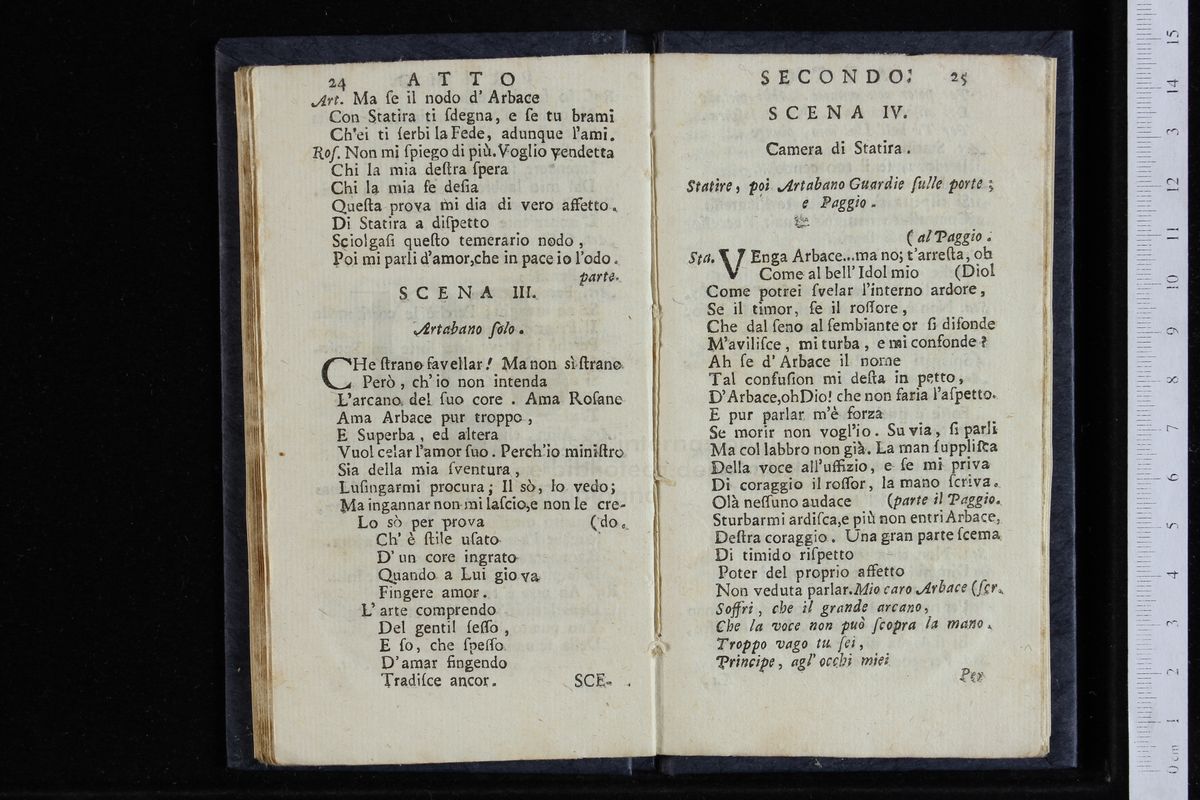 24 ATTO
Art. Ma ſe il nodo d' Arbace
Con Statira ti ſdegna, e ſe tu brami
Ch'ei ti ſerbi la Fede, adunque l'ami.
Roſ. Non mi ſpiego di più. Voglio vendetta
Chi la mia deſtra ſpera
Chi la mia fe deſia
Queſta prova mi dia di vero affetto.
Di Statira a diſpetto
Sciolgaſi queſto temerario nodo,
Poi mi parli d'amor, che in pace io l'odo.
parte.
SCENA III.
Artabano ſolo.
CHe ſtrano favellar! Ma non sì ſtrano
Però, ch'io non intenda
L'arcano del ſuo core. Ama Roſane
Ama Arbace pur troppo,
E Superba, ed altera
Vuol celar l'amor ſuo. Perch'io miniſtro
Sia della mia ſventura,
Luſingarmi procura; Il sò, lo vedo;
Ma ingannar non mi laſcio, e non le cre-
Lo sò per prova (do.
Ch' è ſtile uſato
D'un core ingrato
Quando a Lui giova
Fingere amor.
L' arte comprendo
Del gentil ſeſſo,
E ſo, che ſpeſſo
D'amar fingendo
Tradiſce ancor. SCE-
SECONDO. 25
SCENA IV.
Camera di Statira.
Statire, poi Artabano Guardie ſulle porte;
e Paggio.
( al Paggio.
Sta. VEnga Arbace...ma no; t'arreſta, oh
Come al bell' Idol mio (Dio!
Come potrei ſvelar l'interno ardore,
Se il timor, ſe il roſſore,
Che dal ſeno al ſembiante or ſi difonde
M'aviliſce, mi turba, e mi confonde?
Ah ſe d' Arbace il nome
Tal confuſion mi deſta in petto,
D'Arbace, oh Dio! che non faria l'aſpetto.
E pur parlar m'è forza
Se morir non vogl'io. Su via, ſi parli
Ma col labbro non già. La man ſuppliſca
Della voce all'uffizio, e ſe mi priva
Di coraggio il roſſor, la mano ſcriva.
Olà neſſuno audace (parte il Paggio.
Sturbarmi ardiſca, e più non entri Arbace,
Deſtra coraggio. Una gran parte ſcema
Di timido riſpetto
Poter del proprio affetto
Non veduta parlar. Mio caro Arbace (ſcr.
Soffri, che il grande arcano,
Che la voce non può ſcopra la mano.
Troppo vago tu ſei,
Principe, agl' occhi miei
Per